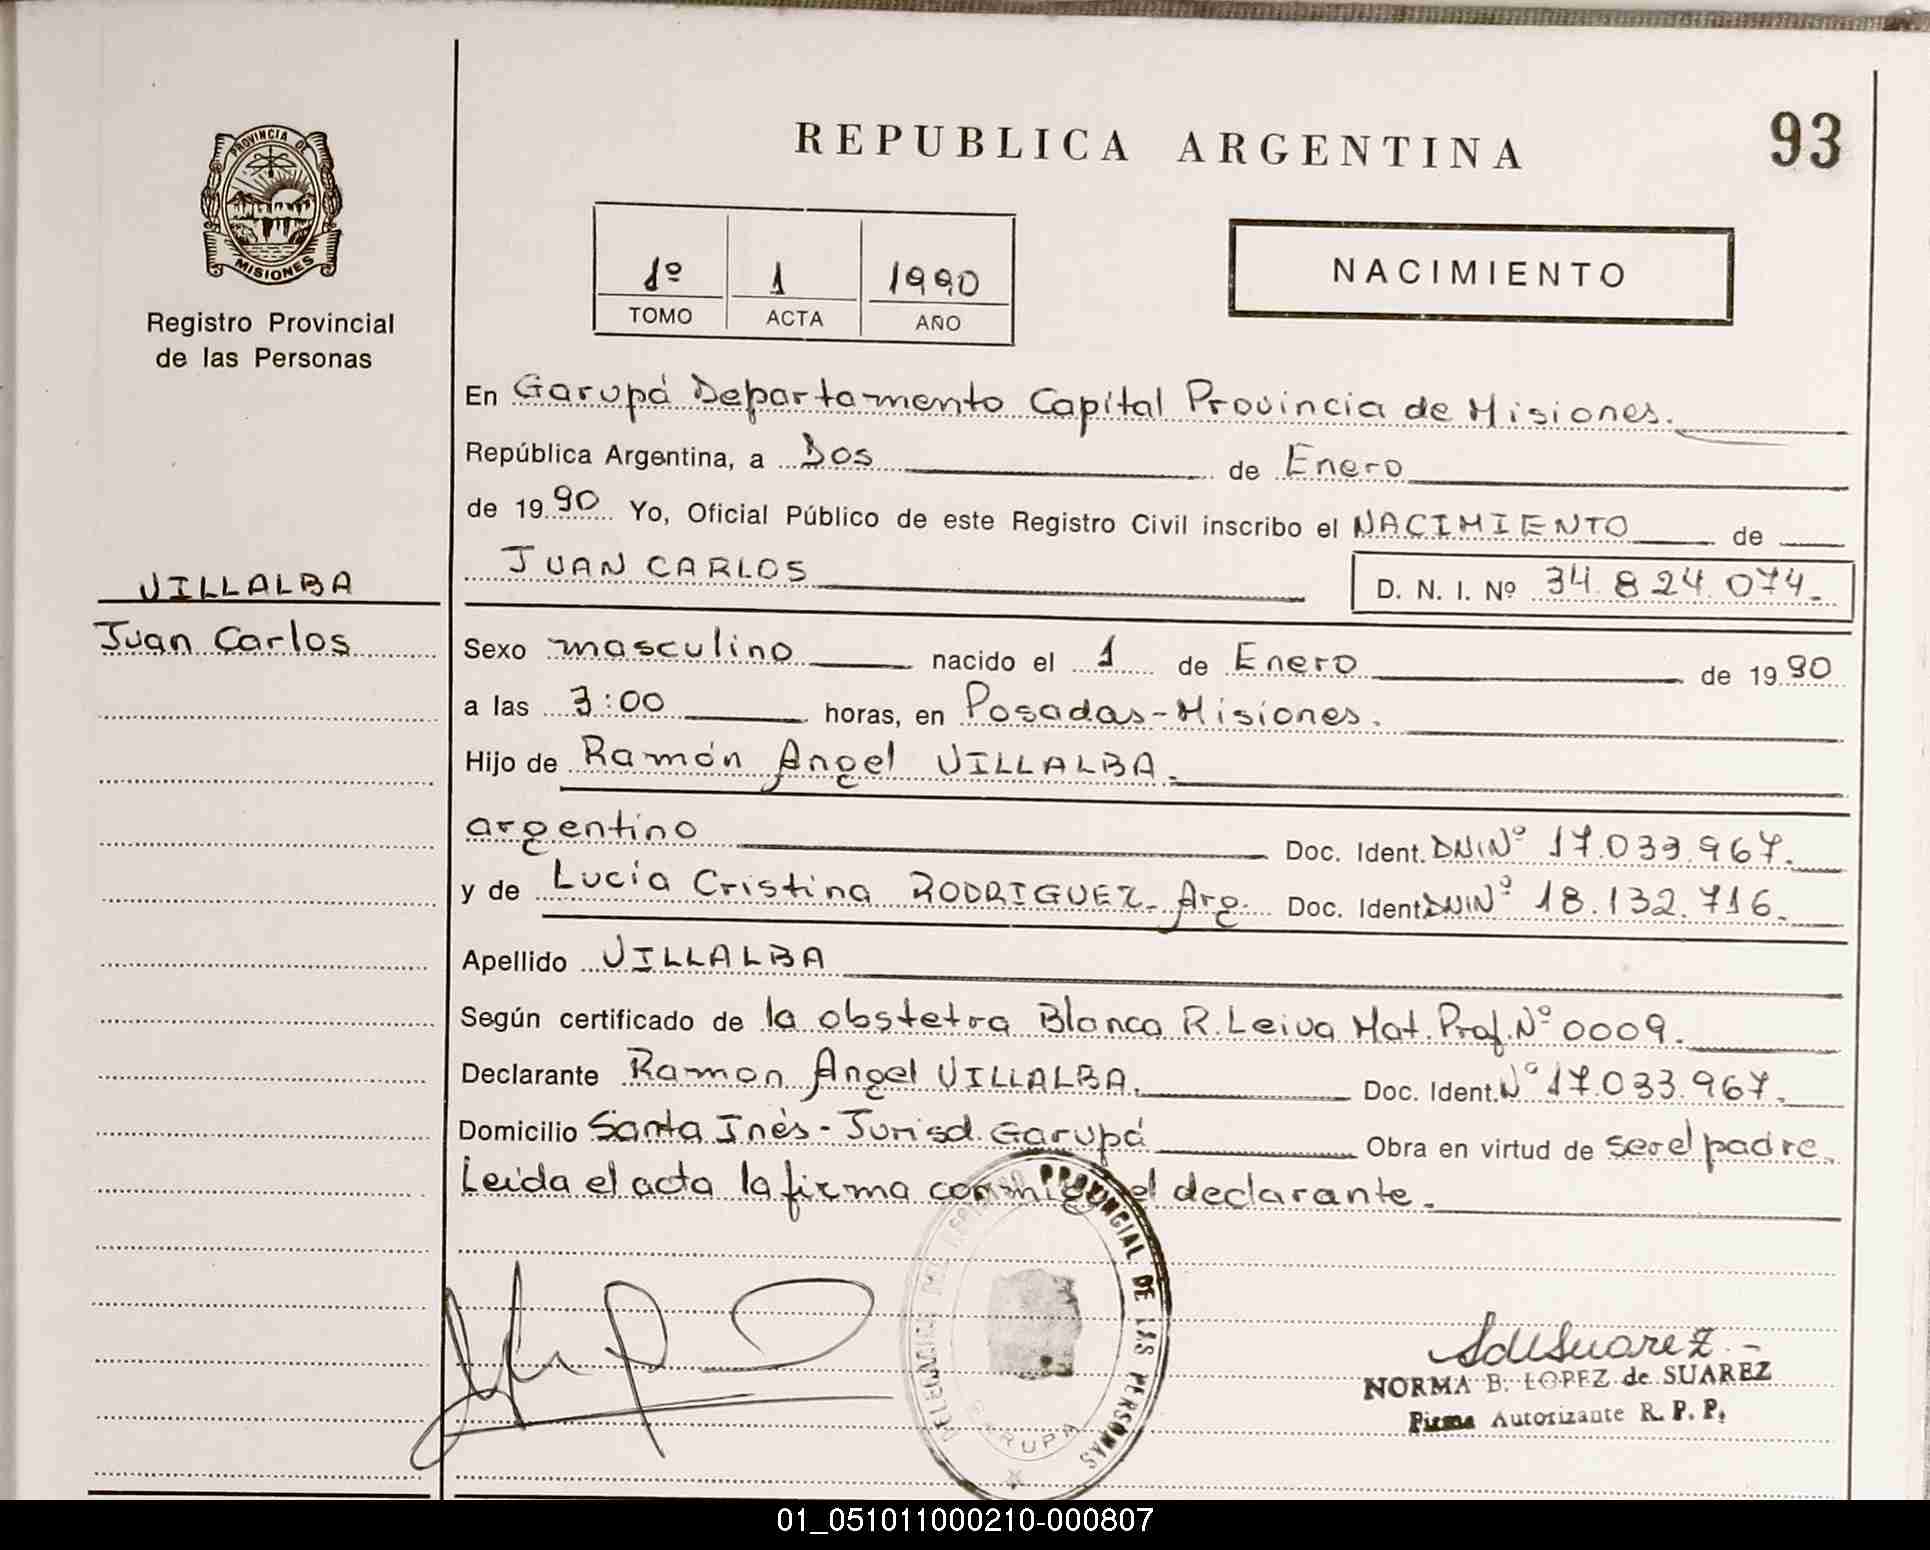 PROVINCIA DE
MISIONES
Registro Provincial
de las Personas
VILLALBA
Juan Carlos
REPUBLICA ARGENTINA
93
1º 1 1990
TOMO ACTA AÑO
NACIMIENTO
En Garupá Departamento Capital Provincia de Misiones.
República Argentina, a Dos de Enero
de 1990 Yo, Oficial Público de este Registro Civil inscribo el NACIMIENTO de
JUAN CARLOS D. N. I. Nº 34.824.074.
Sexo masculino nacido el 1 de Enero de 1990
a las 3:00 horas, en Posadas-Misiones.
Hijo de Ramón Angel VILLALBA.
argentino Doc. Ident. DNI Nº 17.033.967.
y de Lucía Cristina RODRIGUEZ. Arg. Doc. Ident. DNI Nº 18.132.716.
Apellido VILLALBA
Según certificado de la obstetra Blanca R. Leiva Mat. Prof. Nº 0009.
Declarante Ramon Angel VILLALBA. Doc. Ident. Nº 17.033.967.
Domicilio Santa Inés - Jurisd. Garupá Obra en virtud de ser el padre.
Leída el acta la firma conmigo el declarante.
REGISTRO PROVINCIAL DE LAS PERSONAS
GARUPA
NORMA B. LOPEZ de SUAREZ
Firma Autorizante R. P. P.
01_051011000210-000807